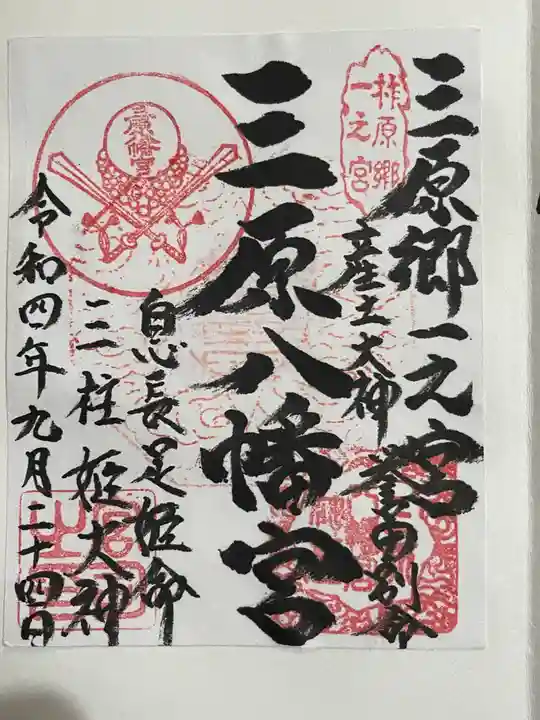 柞原郷
一之宮
三原郷一之宮
産土大神
誉田別命
三原八幡宮
息長足姫命
三柱姫大神
令和四年九月二十四日